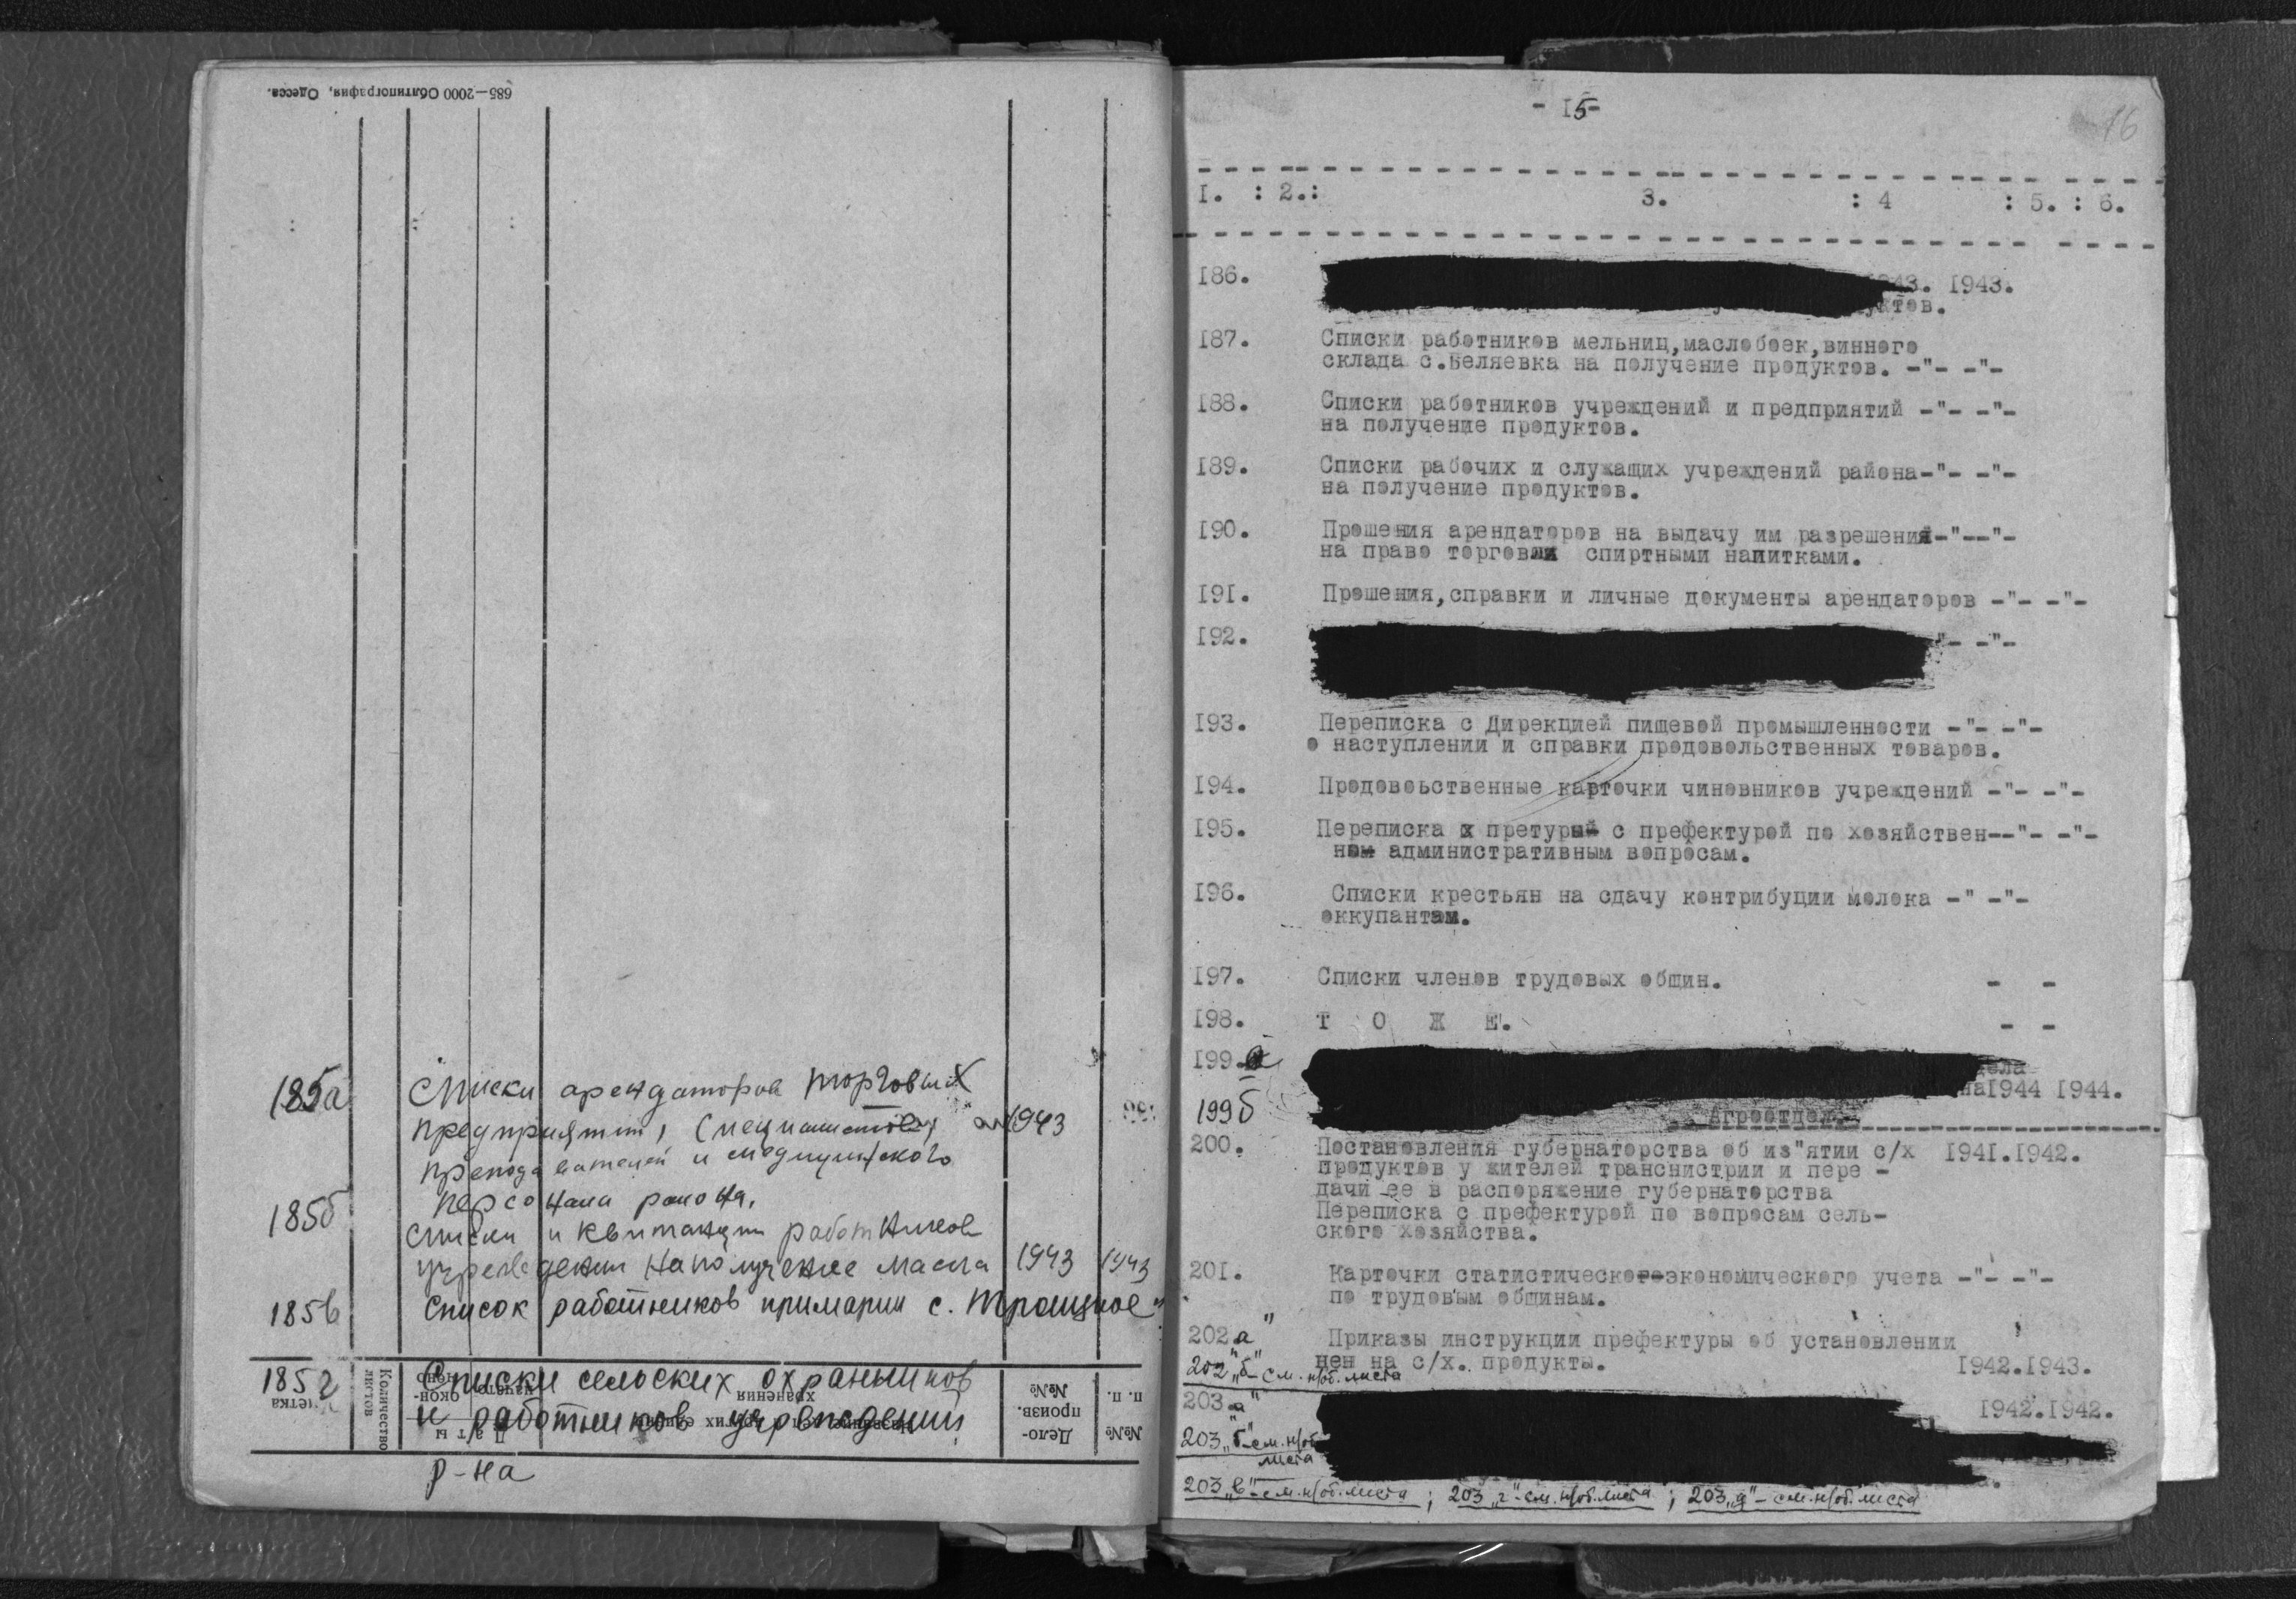 685—2000 Облтипография, Одесса.
185а Списки арендаторов торговых
предприятий, специалистов, 1943
преподавателей и медицинского
персонала района.
185б
списки и квитанции работников
учреждений на получение масла 1943 1943
185в Список работников примарии с. Троицкое
185г Списки сельских охранников
и работников учреждений
р-на
Количество листов
хранения
Дело-произв. №№
№№ п. п.
- I5-
16
I. : 2.: 3. : 4 : 5. : 6.
I86. 43. I943.
уктов.
I87. Списки работников мельниц,маслобоек,винного
склада с.Беляевка на получение продуктов. -"- -"-
I88. Списки работников учреждений и предприятий -"- -"-
на получение продуктов.
I89. Списки рабочих и служащих учреждений района-"- -"-
на получение продуктов.
I90. Прошения арендаторов на выдачу им разрешения-"--"-
на право торговли спиртными напитками.
I9I. Прошения,справки и личные документы арендаторов -"- -"-
I92. "- -"-
I93. Переписка с Дирекцией пищевой промышленности -"- -"-
о наступлении и справки продовольственных товаров.
I94. Продовоьственные карточки чиновников учреждений -"- -"-
I95. Переписка х претуры с префектурой по хозяйствен--"- -"-
ном административным вопросам.
I96. Списки крестьян на сдачу контрибуции молока -" -"-
оккупантам.
I97. Списки членов трудовых общин. - -
I98. Т О Ж Е. - -
I99.а дела
на1944 I944.
199б Агроотдел.
200. Постановления губернаторства об из"ятии с/х I94I.I942.
продуктов у жителей транснистрии и пере -
дачи ее в распоряжение губернаторства
Переписка с префектурой по вопросам сель-
ского хозяйства.
20I. Карточки статистическогоэкономического учета -"- -"-
по трудовым общинам.
202"а" Приказы инструкции префектуры об установлении
цен на с/х. продукты. I942.I943.
202„б"- см. н/об. листа
203„а" I942.I942.
203„б"-см. н/об
листа
203„в"-см. н/об. листа ; 203„г"-см. н/об. листа ; 203„д"- см. н/об. листа